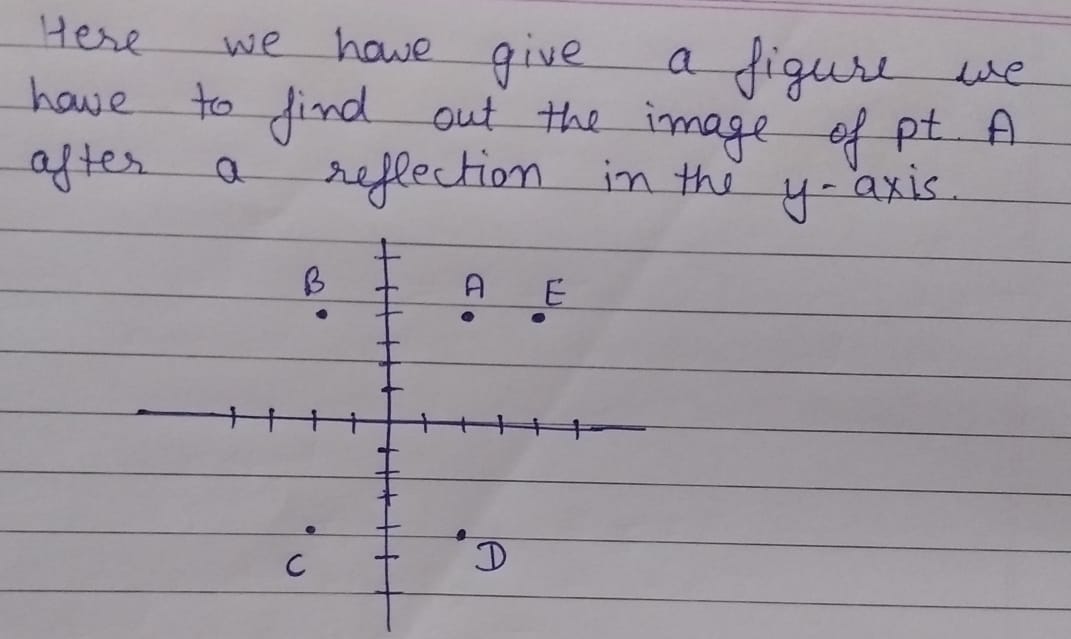 Here we have give a figure we
have to find out the image of pt. A
after a reflection in the y-axis.
B A E
C D